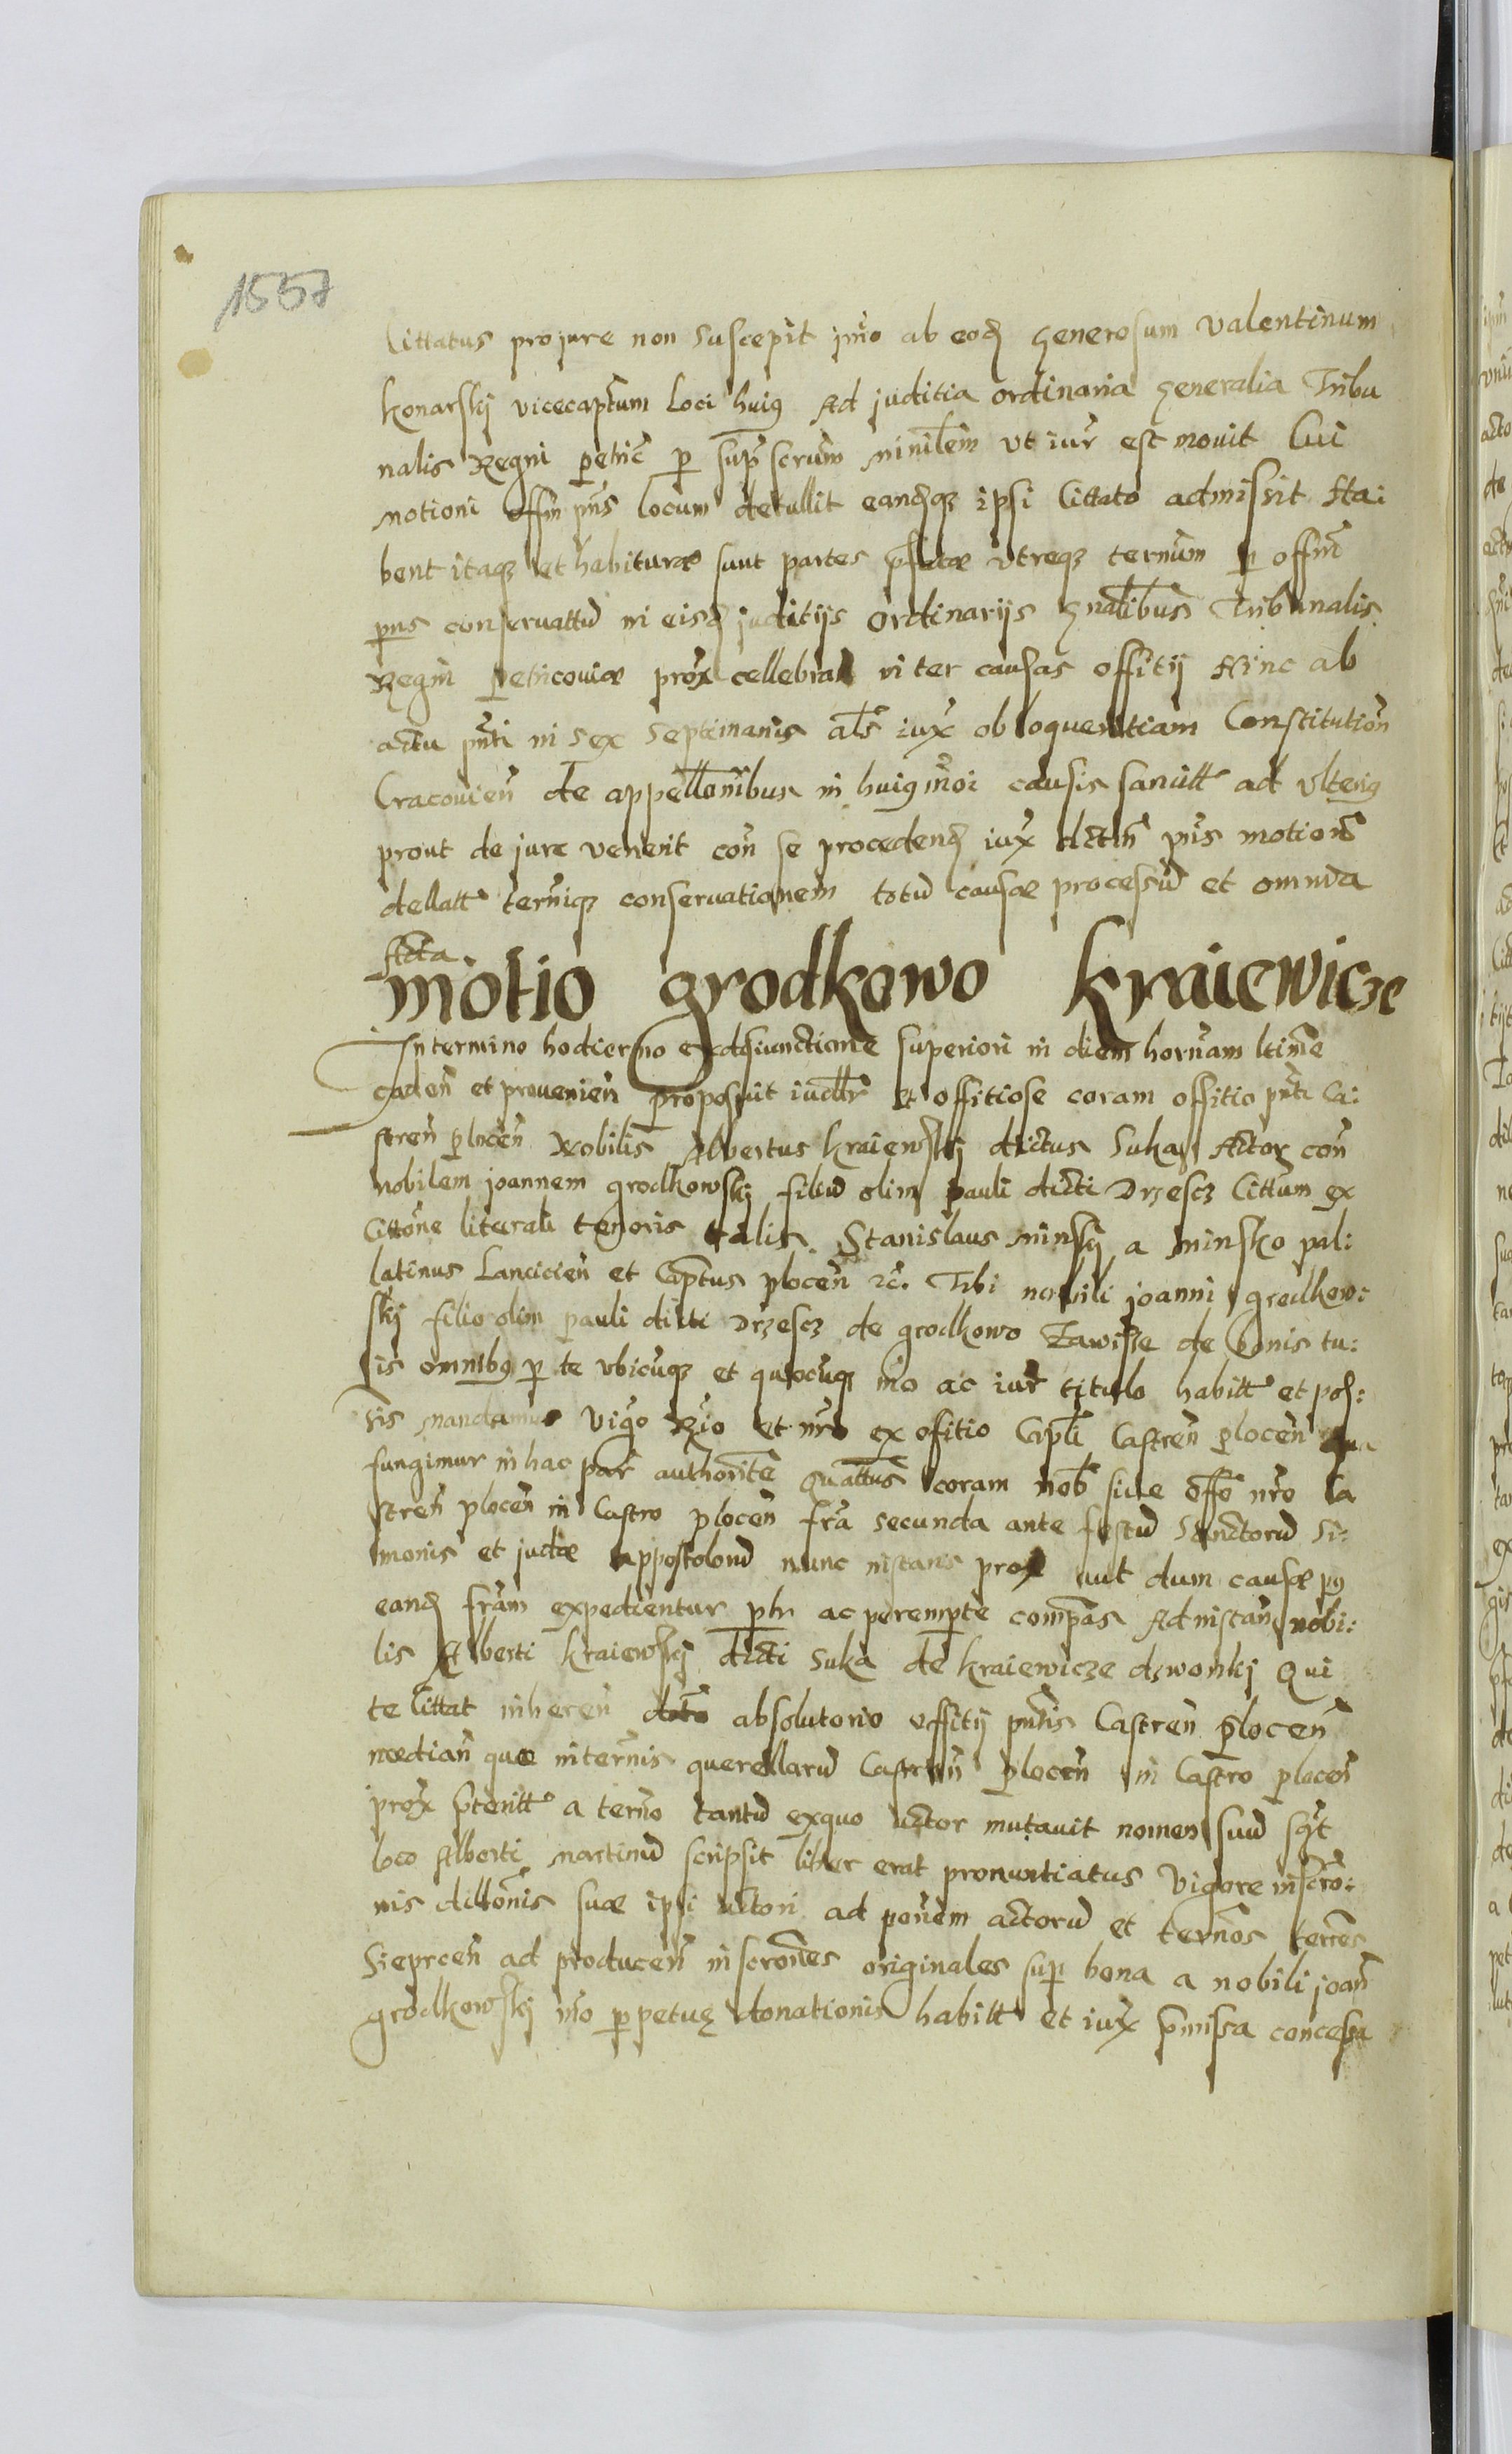 1557
Cittatus pro jure non suscepit im̃o ab eod generosum Valentinum
konarskij vicecaptum Loci huig Ad juditia ordinaria generalia Tribu
nalis Regni petric̃ p sup scrum ministem vt iur̃ est mouit Cui
motioni offm pns locum detullit eandqz ipsi Cittato admissit Ha:
bent itaqz et habituræ sunt partes pfatæ vtreqz termum p offm
pns conseruattu in eisd juditijs ordinarijs gnalibus Tribunalis
Regni petricouiæ prox cellebran inter causas offitij Hinc ab
actu pnti in sex septimanis als iux obloquentiam Constitution
Cracouien de appellonibus in huigmoi causis sancitt ad vlterig
prout de jure venerit con se procedend iux dictm pns motion
dellatt termiqz conseruationem totu causæ processu et omnia
Acta.
motio grodkowo kraiewicze
In termino hodierno ex disiunctione superiori in diem hornam ltime
caden et prouenien proposuit iudlr et offitiose coram offitio pnti Ca:
stren plocen Nobilis Albertus kraiewskij dictus Suka Actor con
nobilem joannem grodkowskij filiu olim pauli dicti Drzescz Cittum ex
Cittone literali tenoris talis. Stanislaus minskij a minsko pal:
latinus Lancicien et Captus plocen 2c. Tibi nobili joanni grodkow:
skij filio olim pauli dicti Drzescz de grodkowo Zawisze de bonis tu:
is omnibg p te vbicuqz et quocuqz mo ac iur titulo habitt et pos:
sis mandamus Vigo Rio et nro ex ofitio Capli Castren plocen qua
fungimur in hac par authorite quattus coram nob siue offo nro Ca
stren plocen in Castro plocen fra secunda ante festu Sanctoru Si:
monis et judæ appostoloru nunc instans prox aut dum causæ pg
eand fram expedientur plr ac perempte compas Ad instan nobi:
lis Alberti kraiewskij dicti Suka de kraiewicze dzwonki Qui
te Cittat inheren dcto absolutorio offitij pntis Castren plocen
median quæ in termis querellaru Castren plocen in Castro plocen
prox pteritt a termo tantu exquo Actor mutauit nomen suu sct
loco Alberti martinu scripsit liber erat pronuntiatus Vigore inscro:
nis dillonis suæ ipsi Actori ad ponem actoru et termos terres
Sieprcen ad producen inscrones originales sup bona a nobili joan
grodkowskij mo ppetuę donationis habitt et iux pmissa concessa